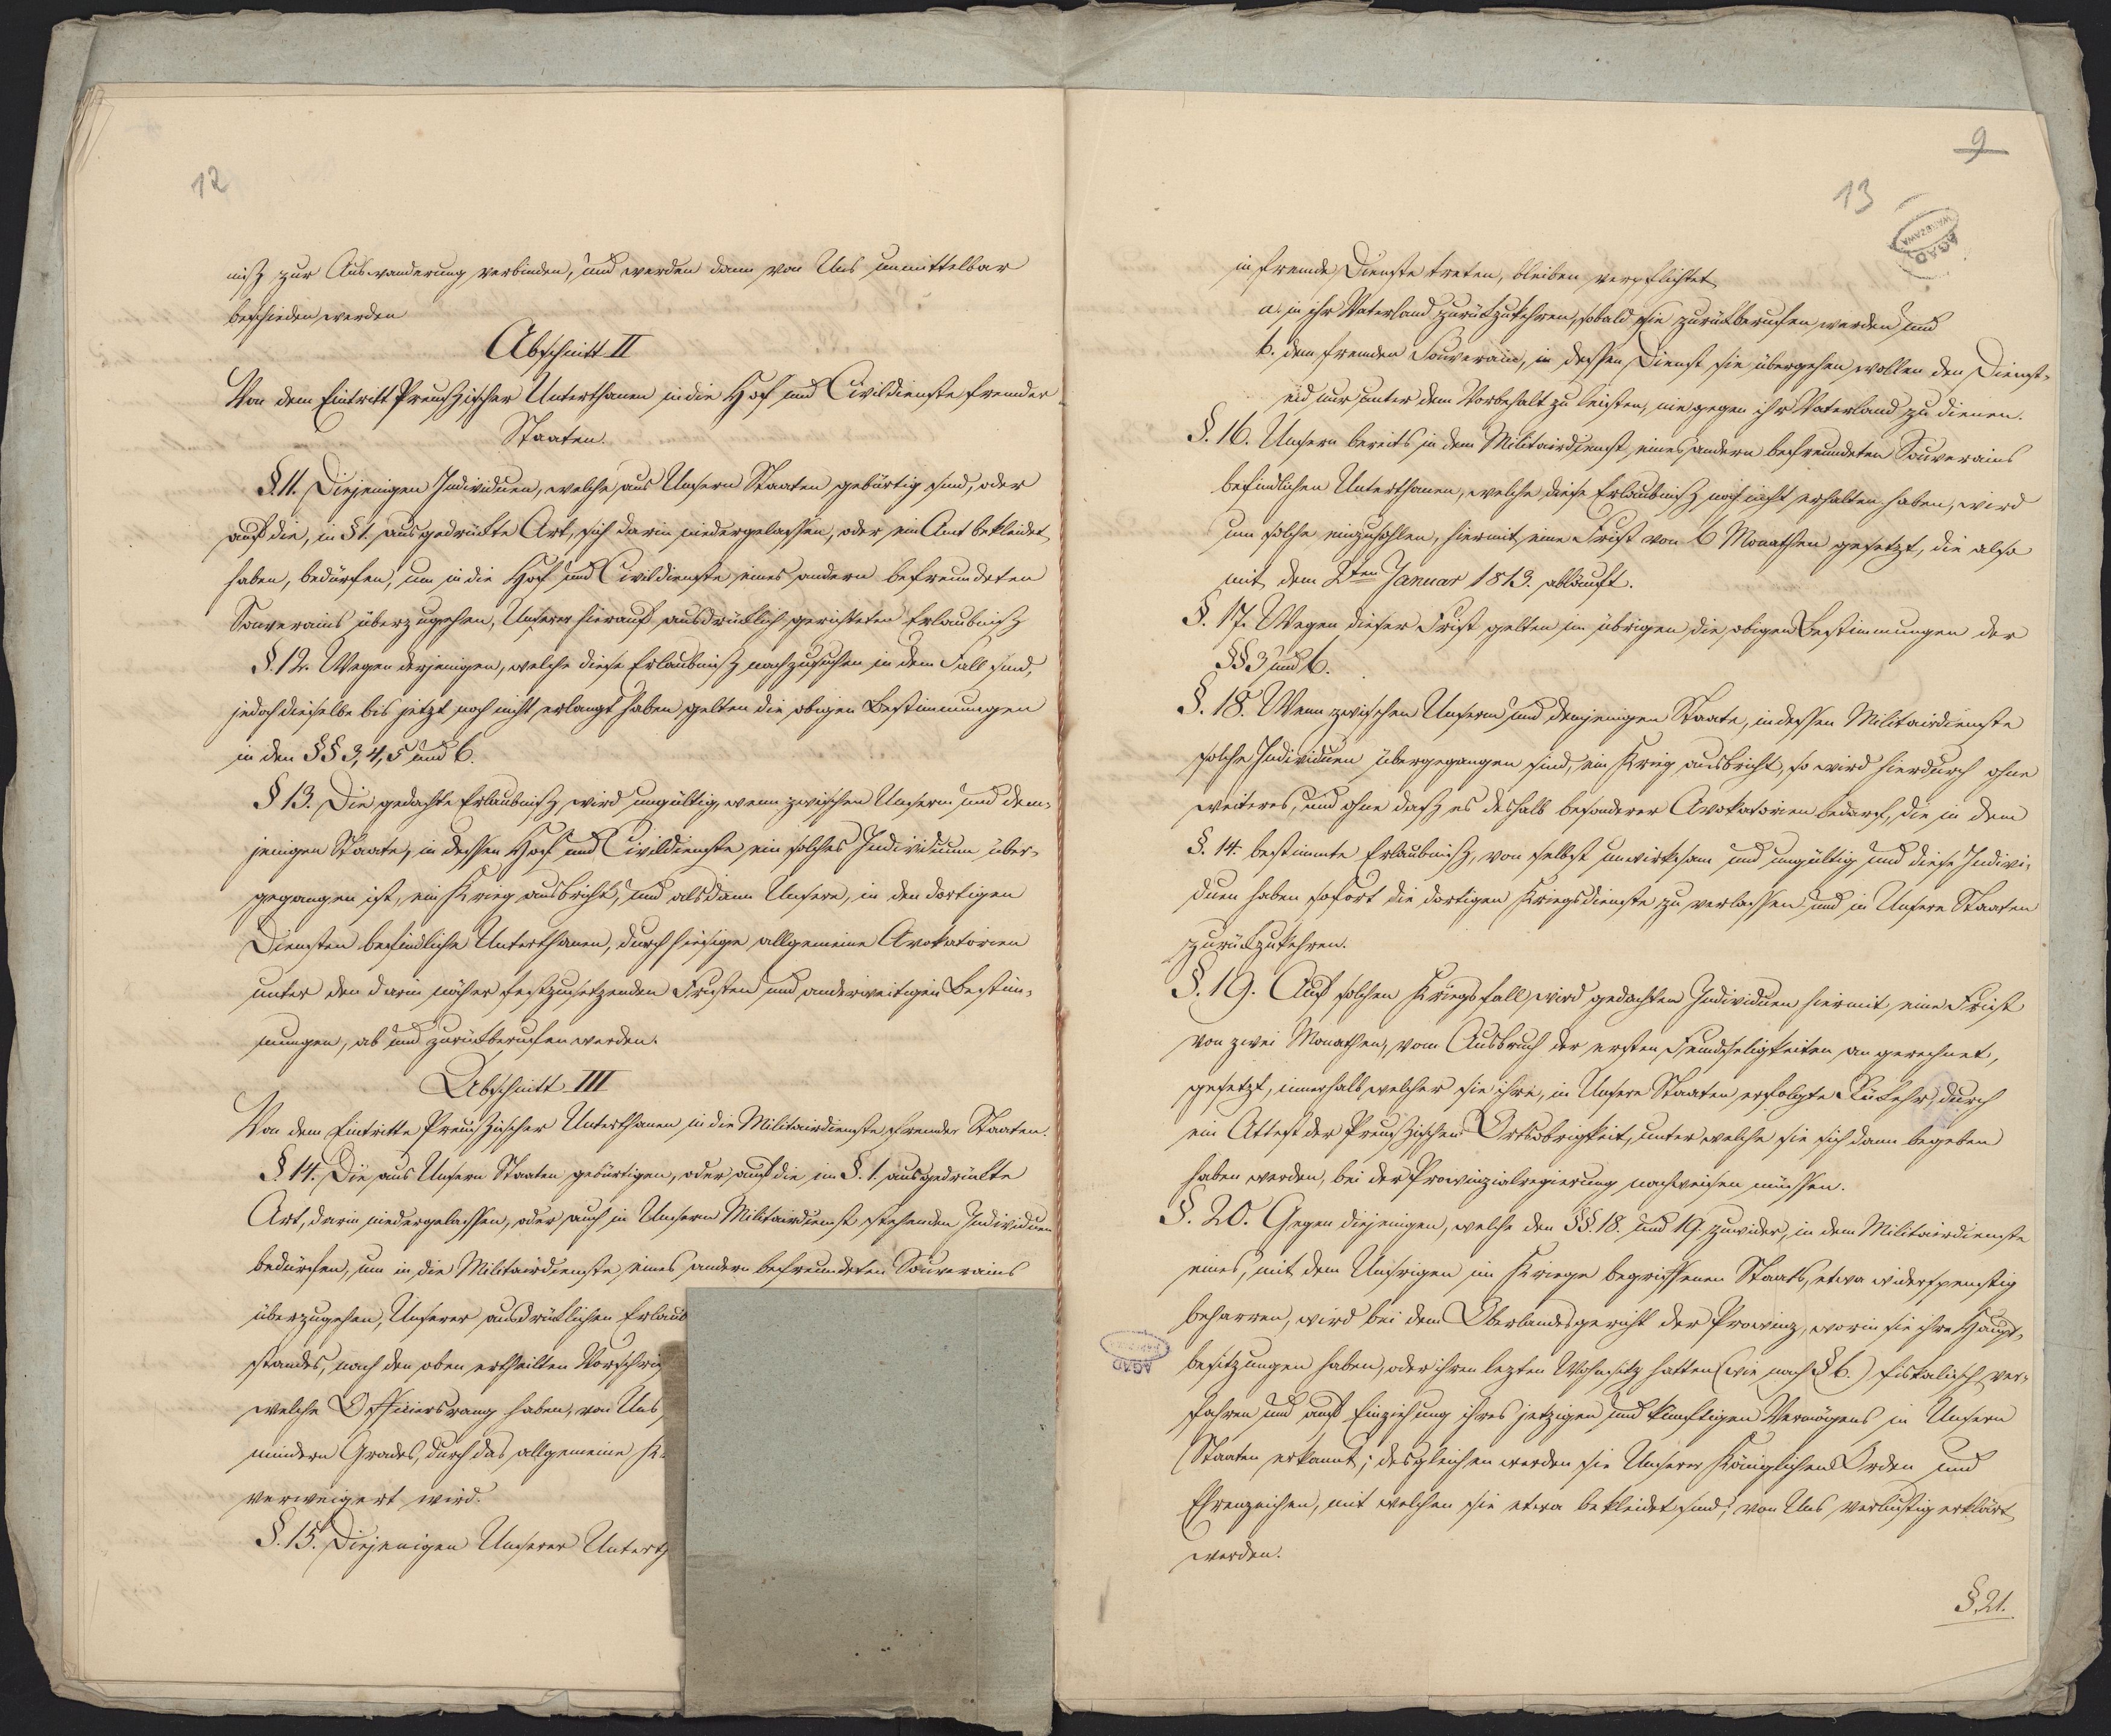 12
niß zur Auswanderung verbinden, und werden dann von Uns unmittelbar
beschieden werden
Abschnitt II
Von dem Eintritt Preußischer Unterthanen in die Hof und Civildienste fremder
Staaten.
§ 11. Diejenigen Individuen, welche aus Unsern Staaten gebürtig sind, oder
auf die, in § 1. ausgedrükte Art, sich darin niedergelassen, oder ein Amt bekleidet
haben, bedürfen, um in die Hof und Civildienste eines andern befreundeten
Souverains überzugehen, Unserer hierauf ausdrüklich gerichteten Erlaubniß
§. 12. Wegen derjenigen, welche diese Erlaubniß nachzusuchen in dem Fall sind,
jedoch dieselbe bis jetzt noch nicht erlangt haben gelten die obigen Bestimmungen
in den §§ 3, 4, 5 und 6.
§ 13. Die gedachte Erlaubniß wird ungültig, wenn zwischen Unserm und dem-
jenigen Staate, in dessen Hof und Civildienste ein solches Individuum über-
gegangen ist, ein Krieg ausbricht, und alsdann Unsere, in den dortigen
Diensten befindliche Unterthanen, durch hiesige allgemeine Avokatorien
unter den darin näher festzusetzenden Fristen und anderweitigen Bestim-
mungen, ab und zurükberufen werden.
Abschnitt III
Von dem Eintritte Preußischer Unterthanen in die Militairdienste fremder Staaten.
§ 14. Die aus Unsern Staaten gebürtigen, oder auf die im §. 1. ausgedrükte
Art, darin niedergelassen, oder auch in Unserm Militairdienst stehenden Individuen
bedürfen, um in die Militairdienste eines andern befreundeten Souverains
überzugehen, Unserer ausdrüklichen Erlaub
standes, nach den oben ertheilten Vorschrif
welche Officiersrang haben, von Uns,
mindern Grades, durch das allgemeine K
verweigert wird.
§. 15. Diejenigen Unserer Unterth
9
13
AGAD
WARSZAWA
in fremde Dienste treten, bleiben verpflichtet
a. in ihr Vaterland zurükzukehren, sobald sie zurükberufen werden und
b. dem fremden Souverain, in dessen Dienst sie übergehen wollen den Dienst-
eid nur unter dem Vorbehalt zu leisten, nie gegen ihr Vaterland zu dienen.
§. 16. Unsern bereits in dem Militairdienst eines andern befreundeten Souverains
befindlichen Unterthanen, welche diese Erlaubniß noch nicht erhalten haben, wird
um solche einzuhohlen, hiermit eine Frist von 6 Monathen gesetzt, die also
mit dem 2ten Januar 1813. abläuft.
§. 17. Wegen dieser Frist gelten im übrigen die obigen Bestimmungen der
§§ 3 und 6.
§. 18. Wenn zwischen Unserm und demjenigen Staate, in dessen Militairdienste
solche Individuen übergegangen sind, ein Krieg ausbricht, so wird hierdurch ohne
weiteres, und ohne daß es deshalb besonderer Avokatorien bedarf, die in dem
§. 14. bestimmte Erlaubniß, von selbst unwirksam und ungültig und diese Indivi-
duen haben sofort die dortigen Kriegsdienste zu verlassen und in Unsere Staaten
zurükzukehren.
§. 19. Auf solchen Kriegsfall wird gedachten Individuen hiermit eine Frist
von zwei Monathen, vom Ausbruch der ersten Feindseligkeiten an gerechnet,
gesetzt, innerhalb welcher sie ihre, in Unsere Staaten erfolgte Rükkehr, durch
ein Attest der Preußischen Ortsobrigkeit, unter welche sie sich dann begeben
haben werden, bei der Provinzialregierung nachweisen müssen.
§. 20. Gegen diejenigen, welche den §§. 18. und 19. zuwider, in dem Militairdienste
eines, mit dem Unsrigen im Kriege begriffenen Staats, etwa widerspenstig
beharren, wird bei dem Oberlandesgericht der Provinz, worin sie ihre Haupt-
besitzungen haben, oder ihren lezten Wohnsitz hatten (wie nach § 6.) fiskalisch ver-
fahren und auf Einziehung ihres jetzigen und künftigen Vermögens in Unsern
Staaten erkannt; desgleichen werden sie Unserer Königlichen Orden und
Ehrenzeichen, mit welchen sie etwa bekleidet sind, von Uns verlustig erklärt
werden.
§. 21.
AGAD